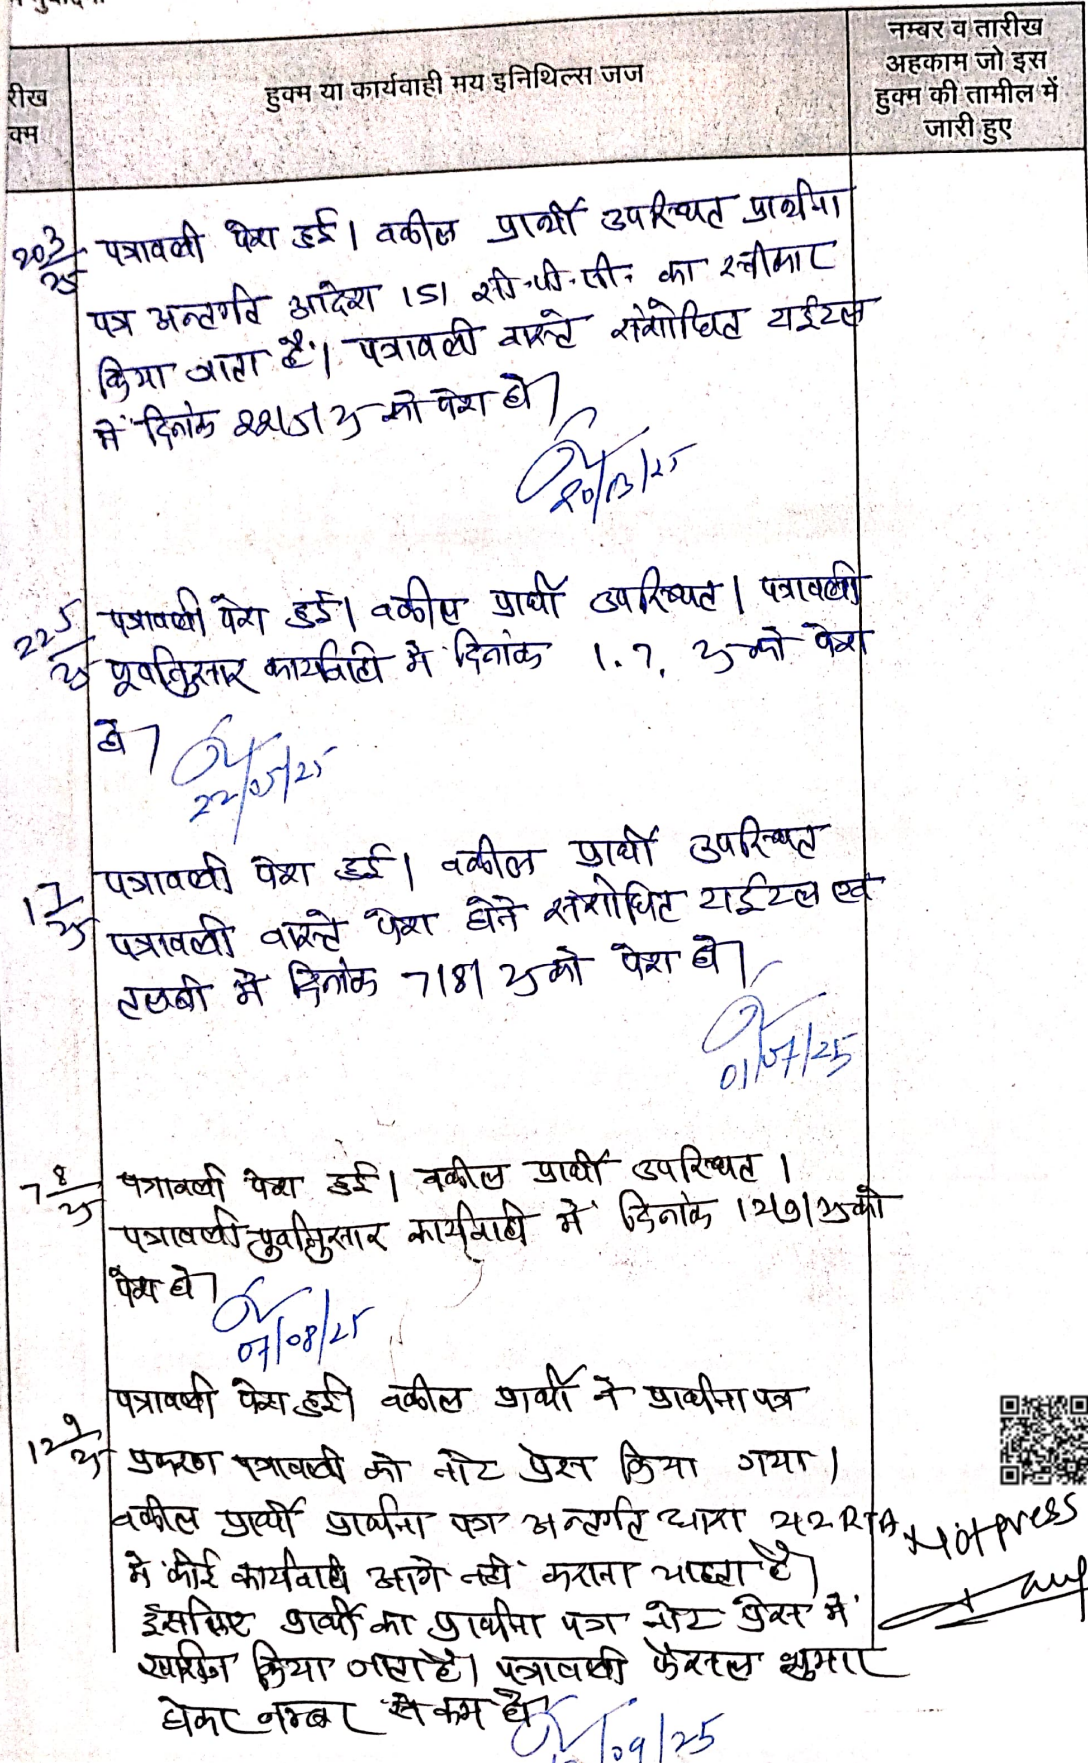 नम्बर व तारीख
अहकाम जो इस
हुक्म की तामील में
जारी हुए
हुक्म या कार्यवाही मय इनिथिल्स जज
रीख
क्म
20/3/25 पत्रावली पेश हुई। वकील प्रार्थी उपस्थित प्रार्थना
पत्र अन्तर्गत आदेश 151 सी.पी.सी. का स्वीकार
किया जाता है। पत्रावली वास्ते संशोधित टाईटल
में दिनांक 22/5/25 को पेश हो।
20/03/25
22/5/25 पत्रावली पेश हुई। वकील प्रार्थी उपस्थित। पत्रावली
पूर्वानुसार कार्यवाही में दिनांक 1.7.25 को पेश
हो।
22/05/25
1/7/25 पत्रावली पेश हुई। वकील प्रार्थी उपस्थित
पत्रावली वास्ते पेश होने संशोधित टाईटल एवं
तलबी में दिनांक 7/8/25 को पेश हो।
01/07/25
7/8/25 पत्रावली पेश हुई। वकील प्रार्थी उपस्थित।
पत्रावली पूर्वानुसार कार्यवाही में दिनांक 12/9/25 को
पेश हो।
07/08/25
12/9/25 पत्रावली पेश हुई। वकील प्रार्थी ने प्रार्थना पत्र
प्रकरण पत्रावली को नोट प्रेस किया गया।
वकील प्रार्थी प्रार्थना पत्र अन्तर्गत धारा 212 RTA
Not press
में कोई कार्यवाही आगे नहीं कराना चाहता है।
इसलिए प्रार्थी का प्रार्थना पत्र नोट प्रेस में
खारिज किया जाता है। पत्रावली फैसल शुमार
होकर नम्बर से कम हो।
/09/25